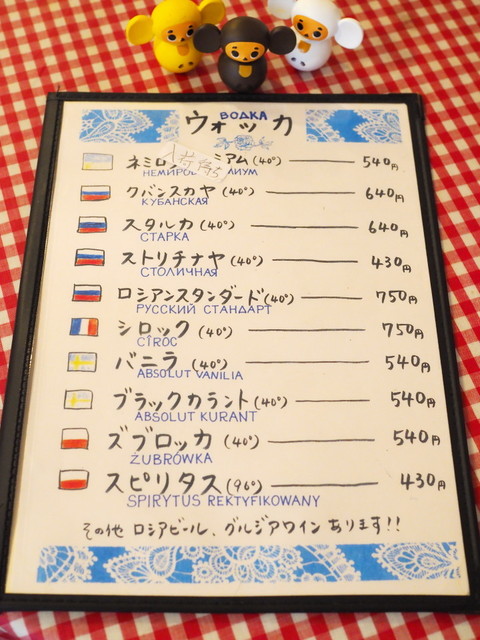 ВОДКА
ウォッカ
入荷待ち
ネミロ ミアム(40°) 540円
НЕМИРОВ МИУМ
クバンスカヤ(40°) 640円
КУБАНСКАЯ
スタルカ(40°) 640円
СТАРКА
ストリチナヤ(40°) 430円
СТОЛИЧНАЯ
ロシアンスタンダード(40°) 750円
РУССКИЙ СТАНДАРТ
シロック(40°) 750円
CÎROC
バニラ(40°) 540円
ABSOLUT VANILIA
ブラックカラント(40°) 540円
ABSOLUT KURANT
ズブロッカ(40°) 540円
ŻUBRÓWKA
スピリタス(96°) 430円
SPIRYTUS REKTYFIKOWANY
その他 ロシアビール、グルジアワイン あります!!